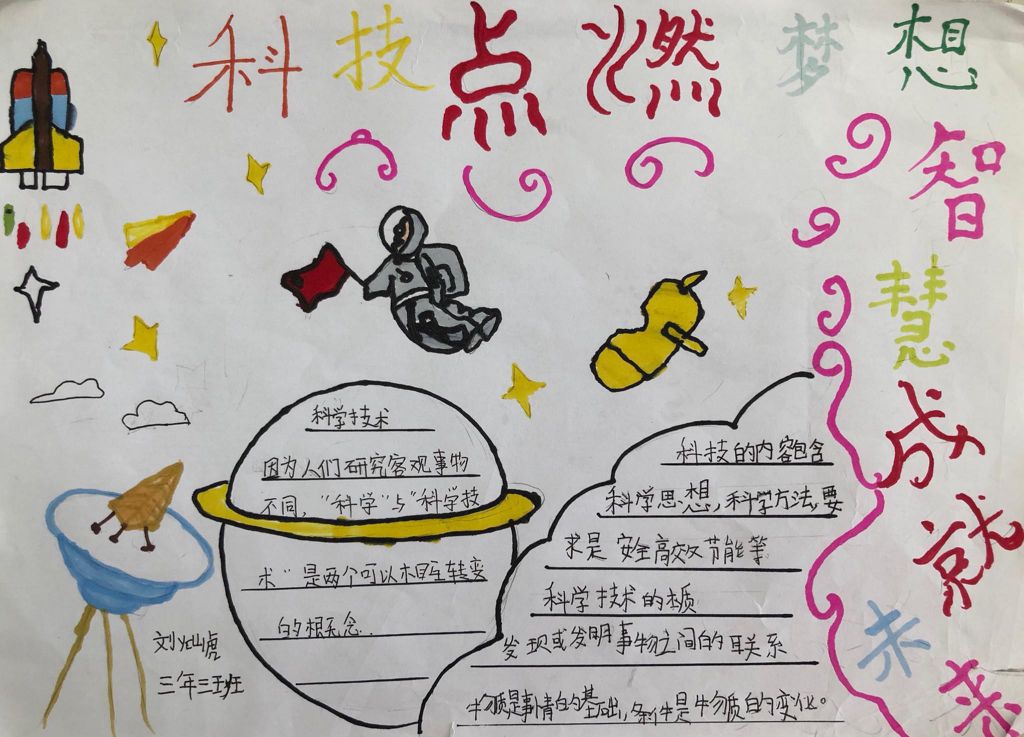 科技点燃梦想
智慧成就未来
科学技术
因为人们研究客观事物
不同，"科学"与"科学技
术"是两个可以相互转变
的概念.
刘灿虎
三年三班
科技的内容包含
科学思想，科学方法，要
求是安全高效又节能等
科学技术的本质
发现或发明事物之间的联系
物质是事情的基础，条件是物质的变化。